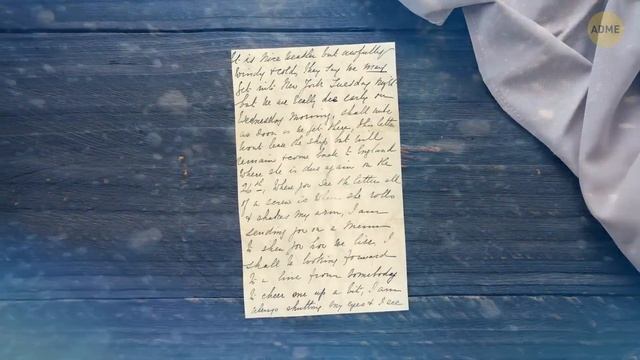 ADME
It is nice weather but awfully
windy & cold, they say we may
get into New York Tuesday night
but we are really due early on
Wednesday morning, shall write
as soon as we get there, this letter
wont leave the ship but will
remain & come back to England
where she is due again on the
26th, Where you see the letter all
of a screw is when she rolls
& shakes my arm, I am
sending you on a Menu
to shew you how we live, I
shall be looking forward
to a line from somebody
to cheer me up a bit, I am
always shutting my eyes & I see